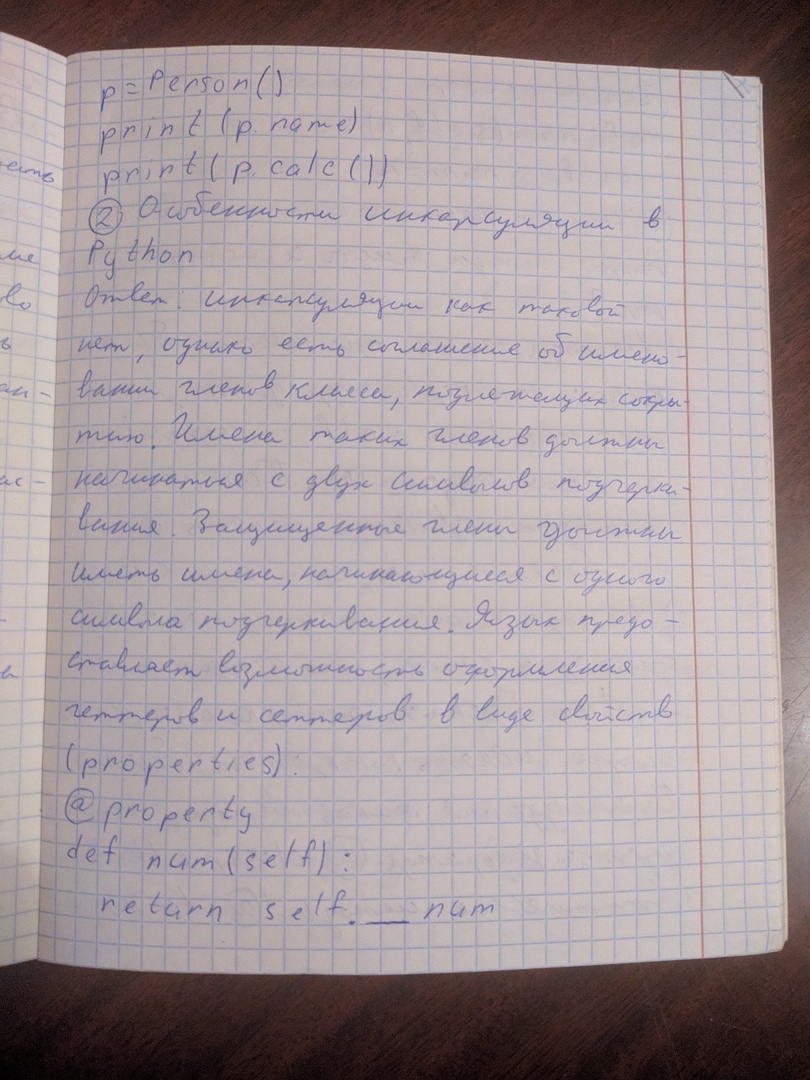 p = Person()
print(p.name)
print(p.calc())
② Особенности инкапсуляции в
Python
Ответ: инкапсуляции как таковой
нет, однако есть соглашение об имено-
вании членов класса, подлежащих сокры-
тию. Имена таких членов должны
начинаться с двух символов подчерки-
вания. Защищенные члены должны
иметь имена, начинающиеся с одного
символа подчеркивания. Язык предо-
ставляет возможность оформления
геттеров и сеттеров в виде свойств
(properties):
@property
def num(self):
return self.__num